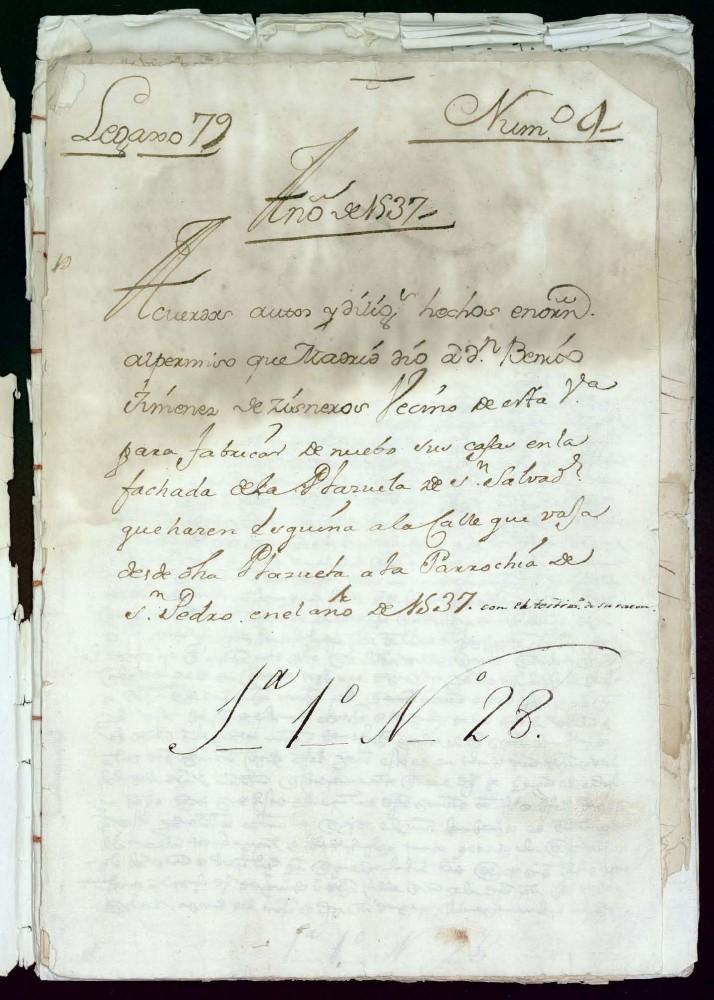 Legaxo 79 Num.º 9
Año de 1537
Acuerdos autos y dilig.s hechos en orn.
al permiso que Madrid dio a d.n Benito
Ximenez de Zisneros Vecino de esta V.a
para fabricar de nuebo sus casas en la
fachada de la Plazuela de S.n Salvad.r
que hazen Esquina a la Calle que vaja
desde dha Plazuela a la Parrochia de
S.n Pedro en el año de 1537. con el testim.o de su razon.
S.a 1º N.º 28.